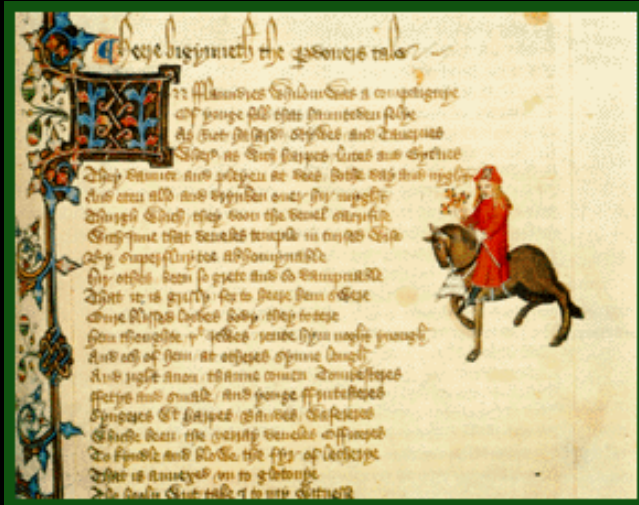 Heere bigynneth the Pardoners tale
In fflaundres whilom was a compaignye
Of yonge folk that haunteden folye
As riot hasard stywes and Tauernes
Wher as with harpes lutes and gyternes
They daunce and pleyen at dees bothe day and nyght
And eten also and drynken ouer hir myght
Thurgh which they doon the deuel sacrifise
With Inne that deueles temple in cursed wise
By superfluytee abhomynable
Hir othes been so grete and so dampnable
That it is grisly for to heere hem swere
Oure blissed lordes body they totere
Hem thoughte þᵗ Iewes rente hym noght ynough
And ech of hem at otheres synne lough
And right anon thanne comen Tombesteres
ffetys and smale and yonge ffrutesteres
Syngeres wᵗ harpes Baudes wafereres
Whiche been the verray deueles Officeres
To kyndle and blowe the fyr of lecherye
That is annexed vn to glotonye
The hooly writ take I to my witnesse